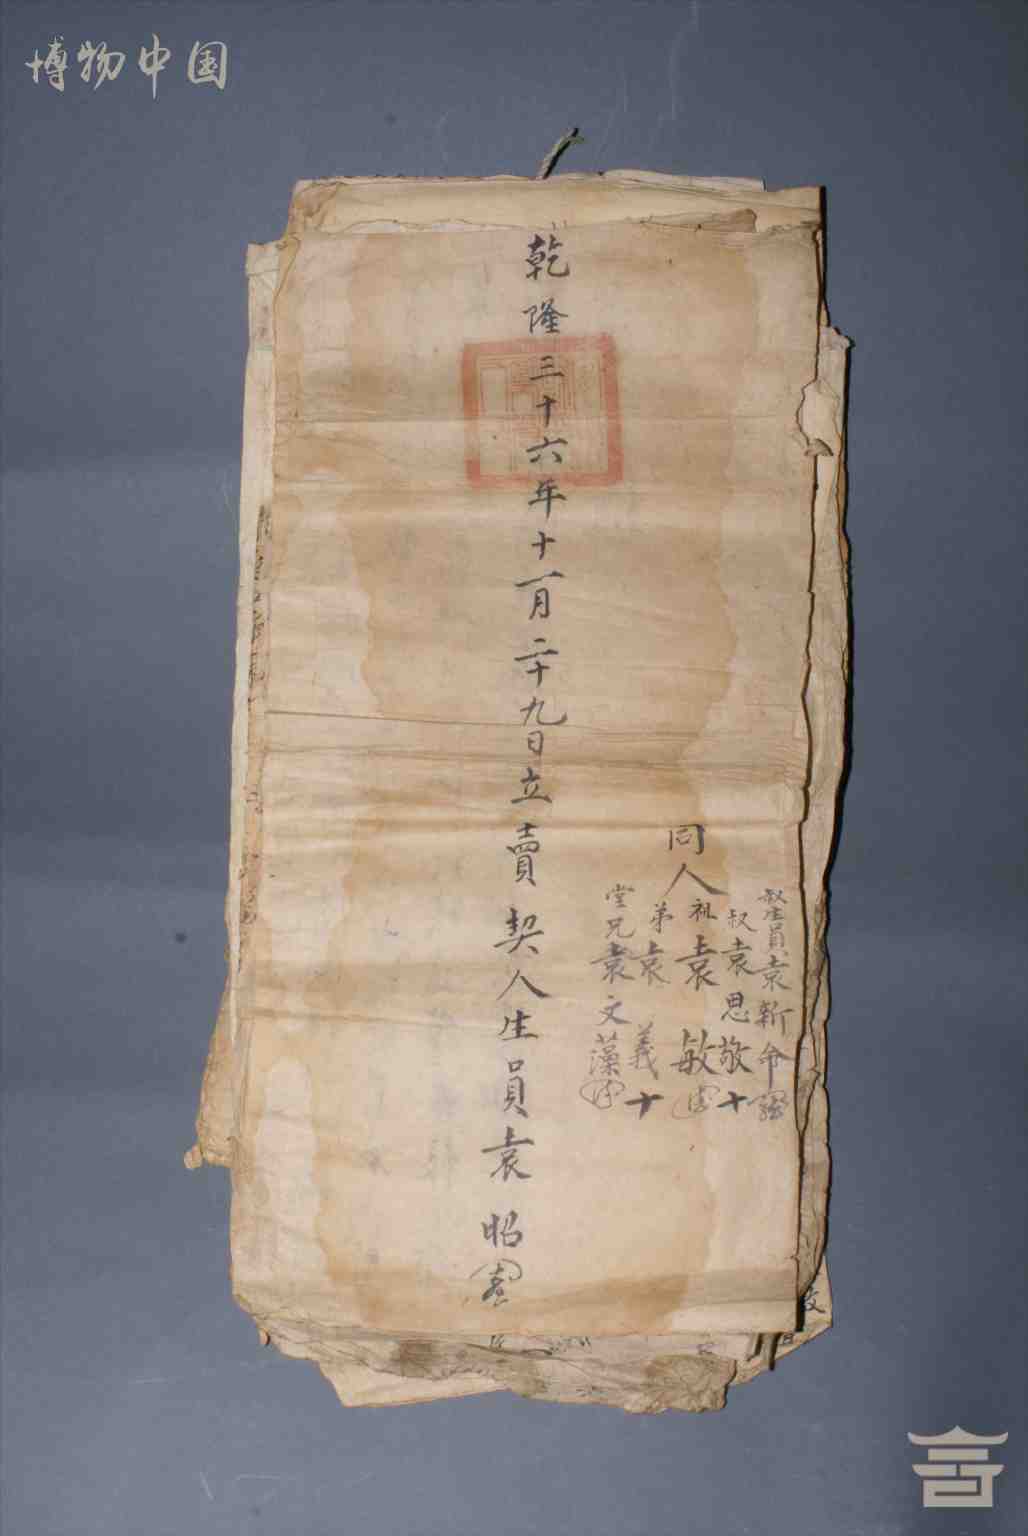 博物中国
叔生員袁新命
叔袁思敬十
同人祖袁敏
弟袁義十
堂兄袁文藻
乾隆三十六年十一月二十九日立賣契人生員袁昭